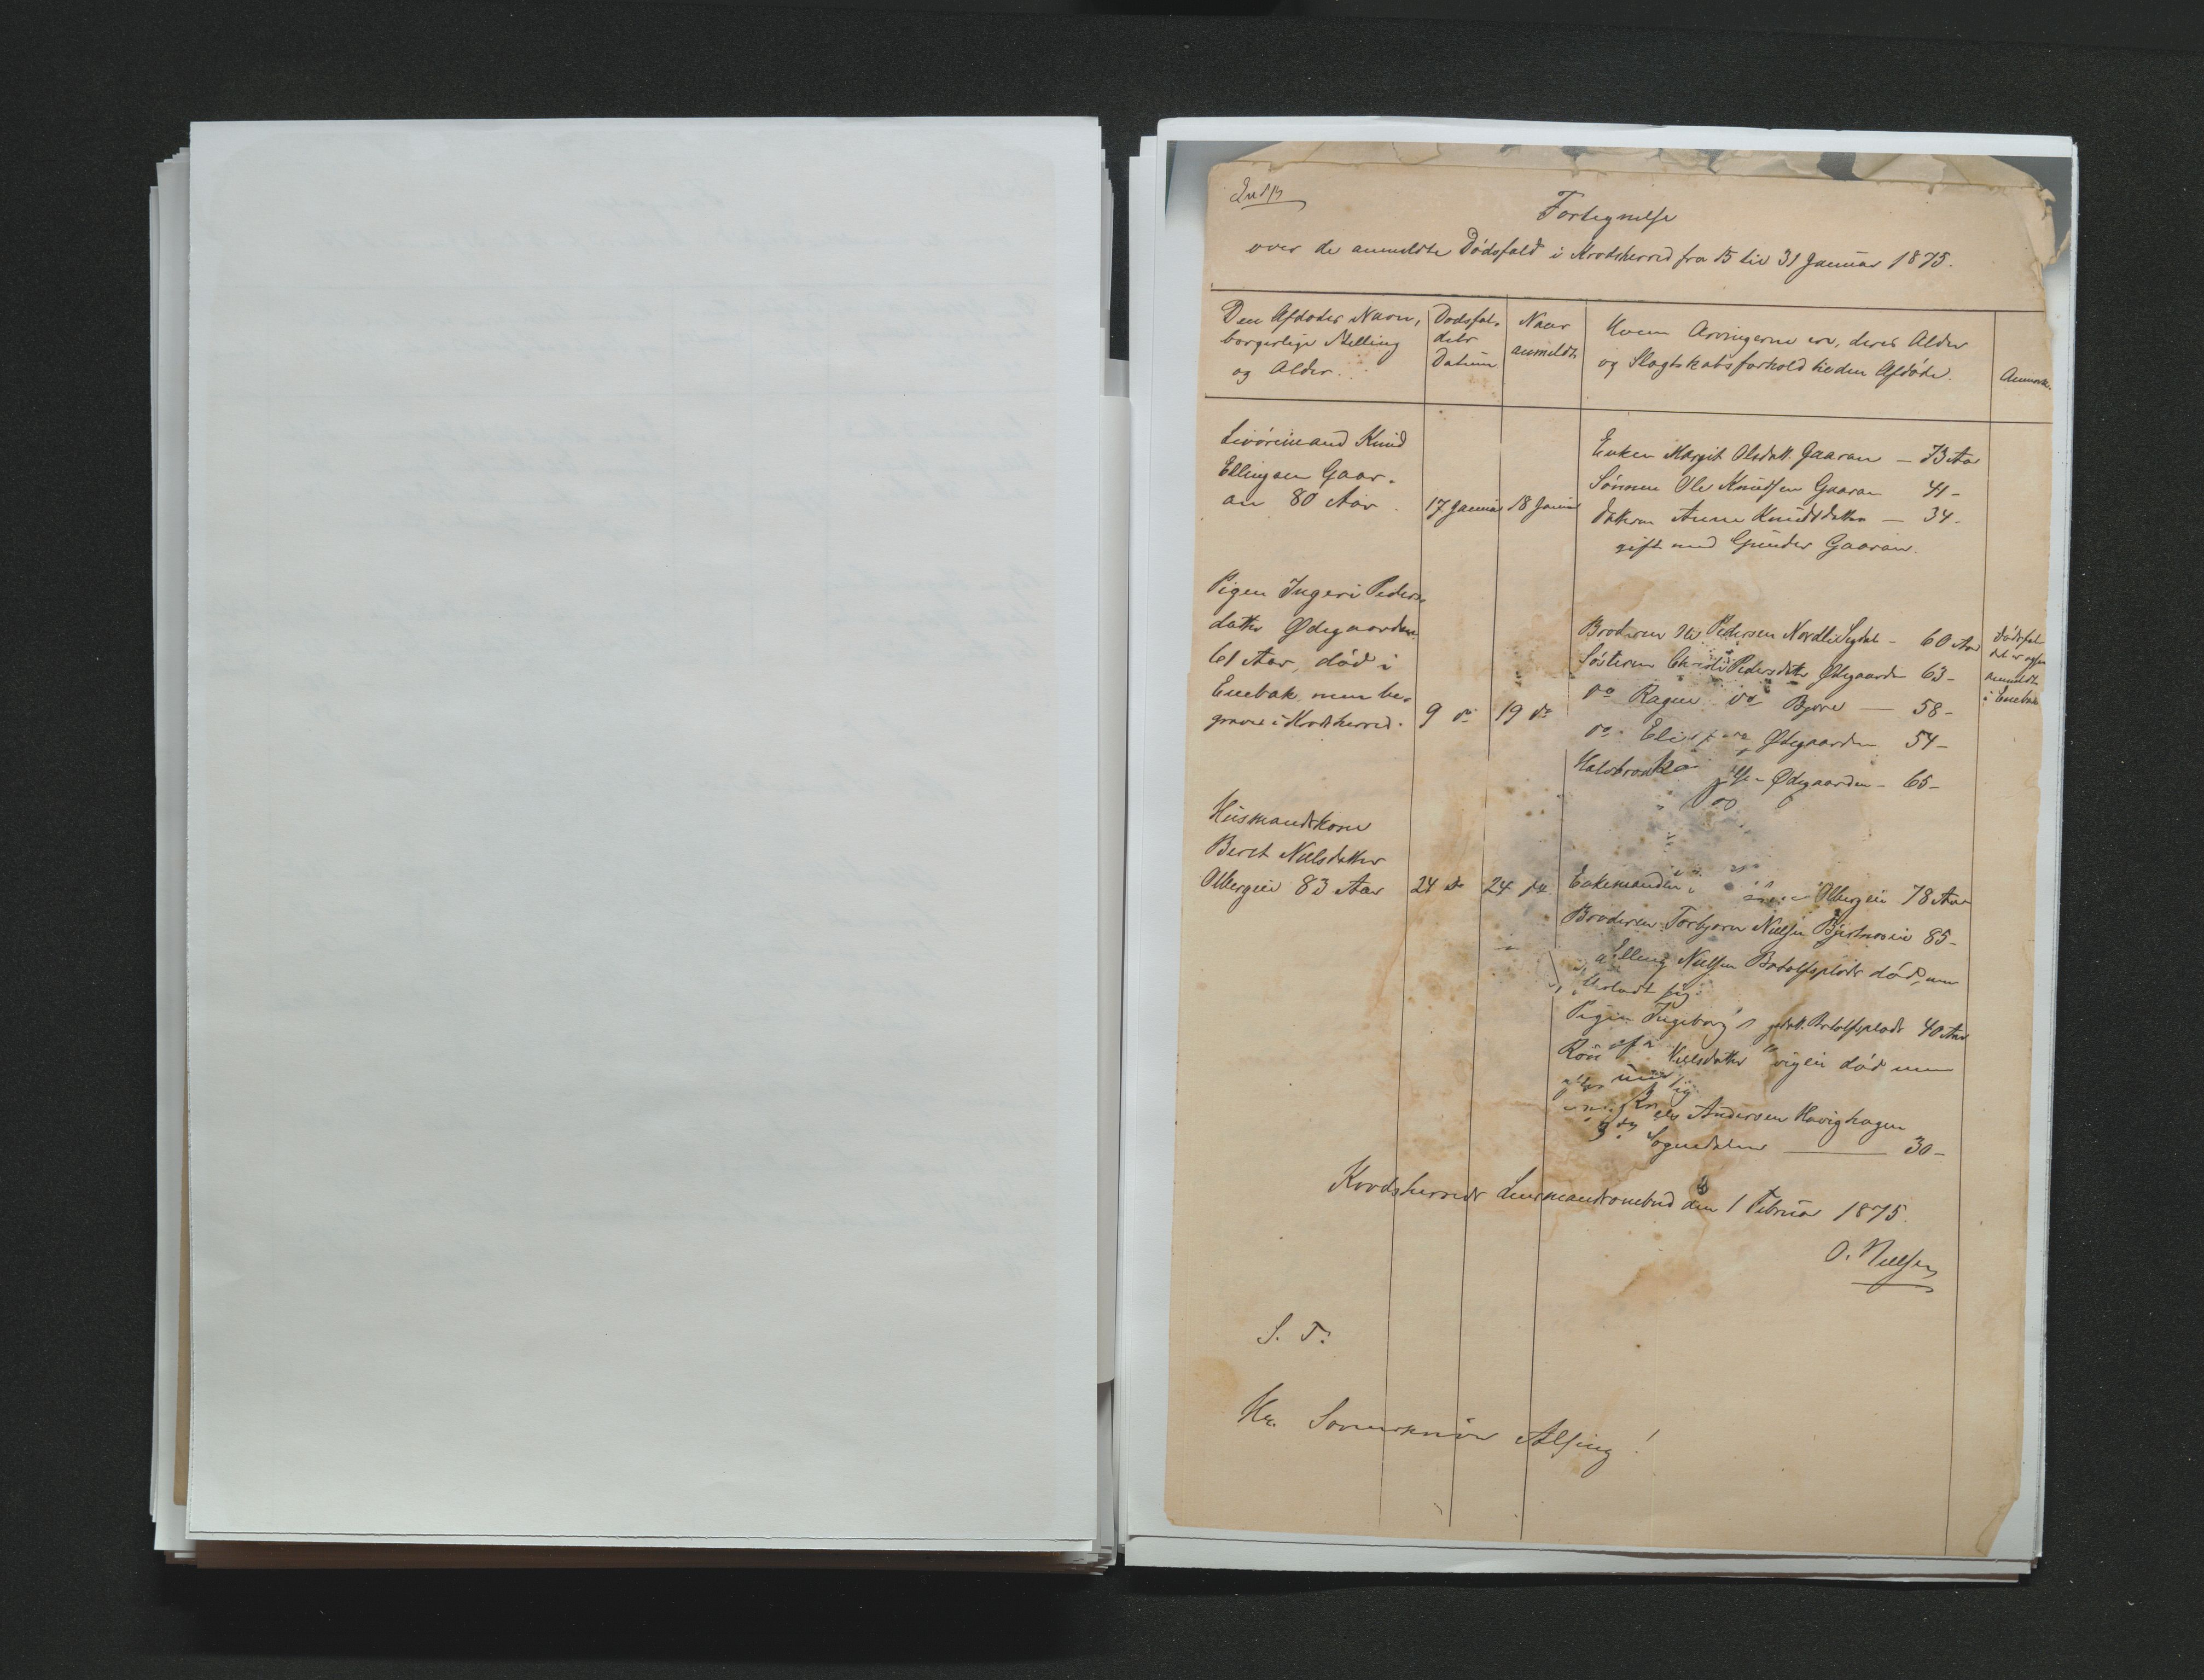 Fortegnelse
over de anmeldte Dødsfald i Krødsherred fra 15 til 31 Januar 1875.
Den Afdødes Navn,
borgerlige Stilling
og Alder.
Dødsfal-
dets
Datum
Naar
anmeldt
Hvem Arvingerne ere, deres Alder
og Slægtskabsforhold til den Afdøde.
Anmærk.
Livøreimand Knud
Ellingsen Gaar-
an 80 Aar
17 Januar
18 Januar
Enken Margit Olsdatt. Gaaran — 73 Aar
Sønnen Ole Knudsen Gaaran 41 -
Datteren Anne Knudsdatter — 34 -
gift med Gunder Gaaran.
Pigen Ingeri Peders-
datter Ødegaarden
61 Aar, død i
Enebak men be-
graven i Krødsherred.
9 do
19 do
Broderen Ole Pedersen Nordli Sigdal - 60 Aar
Søsteren Christi Pedersdatter Ødegaarden 63 -
do Ragne do Bjøre — 58 -
do Eli Ødegaarden 54 -
Halvbro Ødegaarden - 65 -
Dødsfal-
det er ogsaa
anmeldt
i Enebak
Husmandskone
Beret Nielsdatter
Olbergeie 83 Aar
24 do
24 do
Enkemanden Olbergeie 78 Aar
Broderen Torbjørn Nielsen 85 -
Elling Nielsen Botolfsplads død, men
efterladt sig:
Pigen Ingeborg Botolfsplads 40 Aar
Nielsdatter død men
Andersen Hovighagen
Sognedalen — 30 -
Krødsherreds Lensmandsombud den 1 Februar 1875.
O. Nielsen
S. T.
Hr. Sorenskriver Alsing!